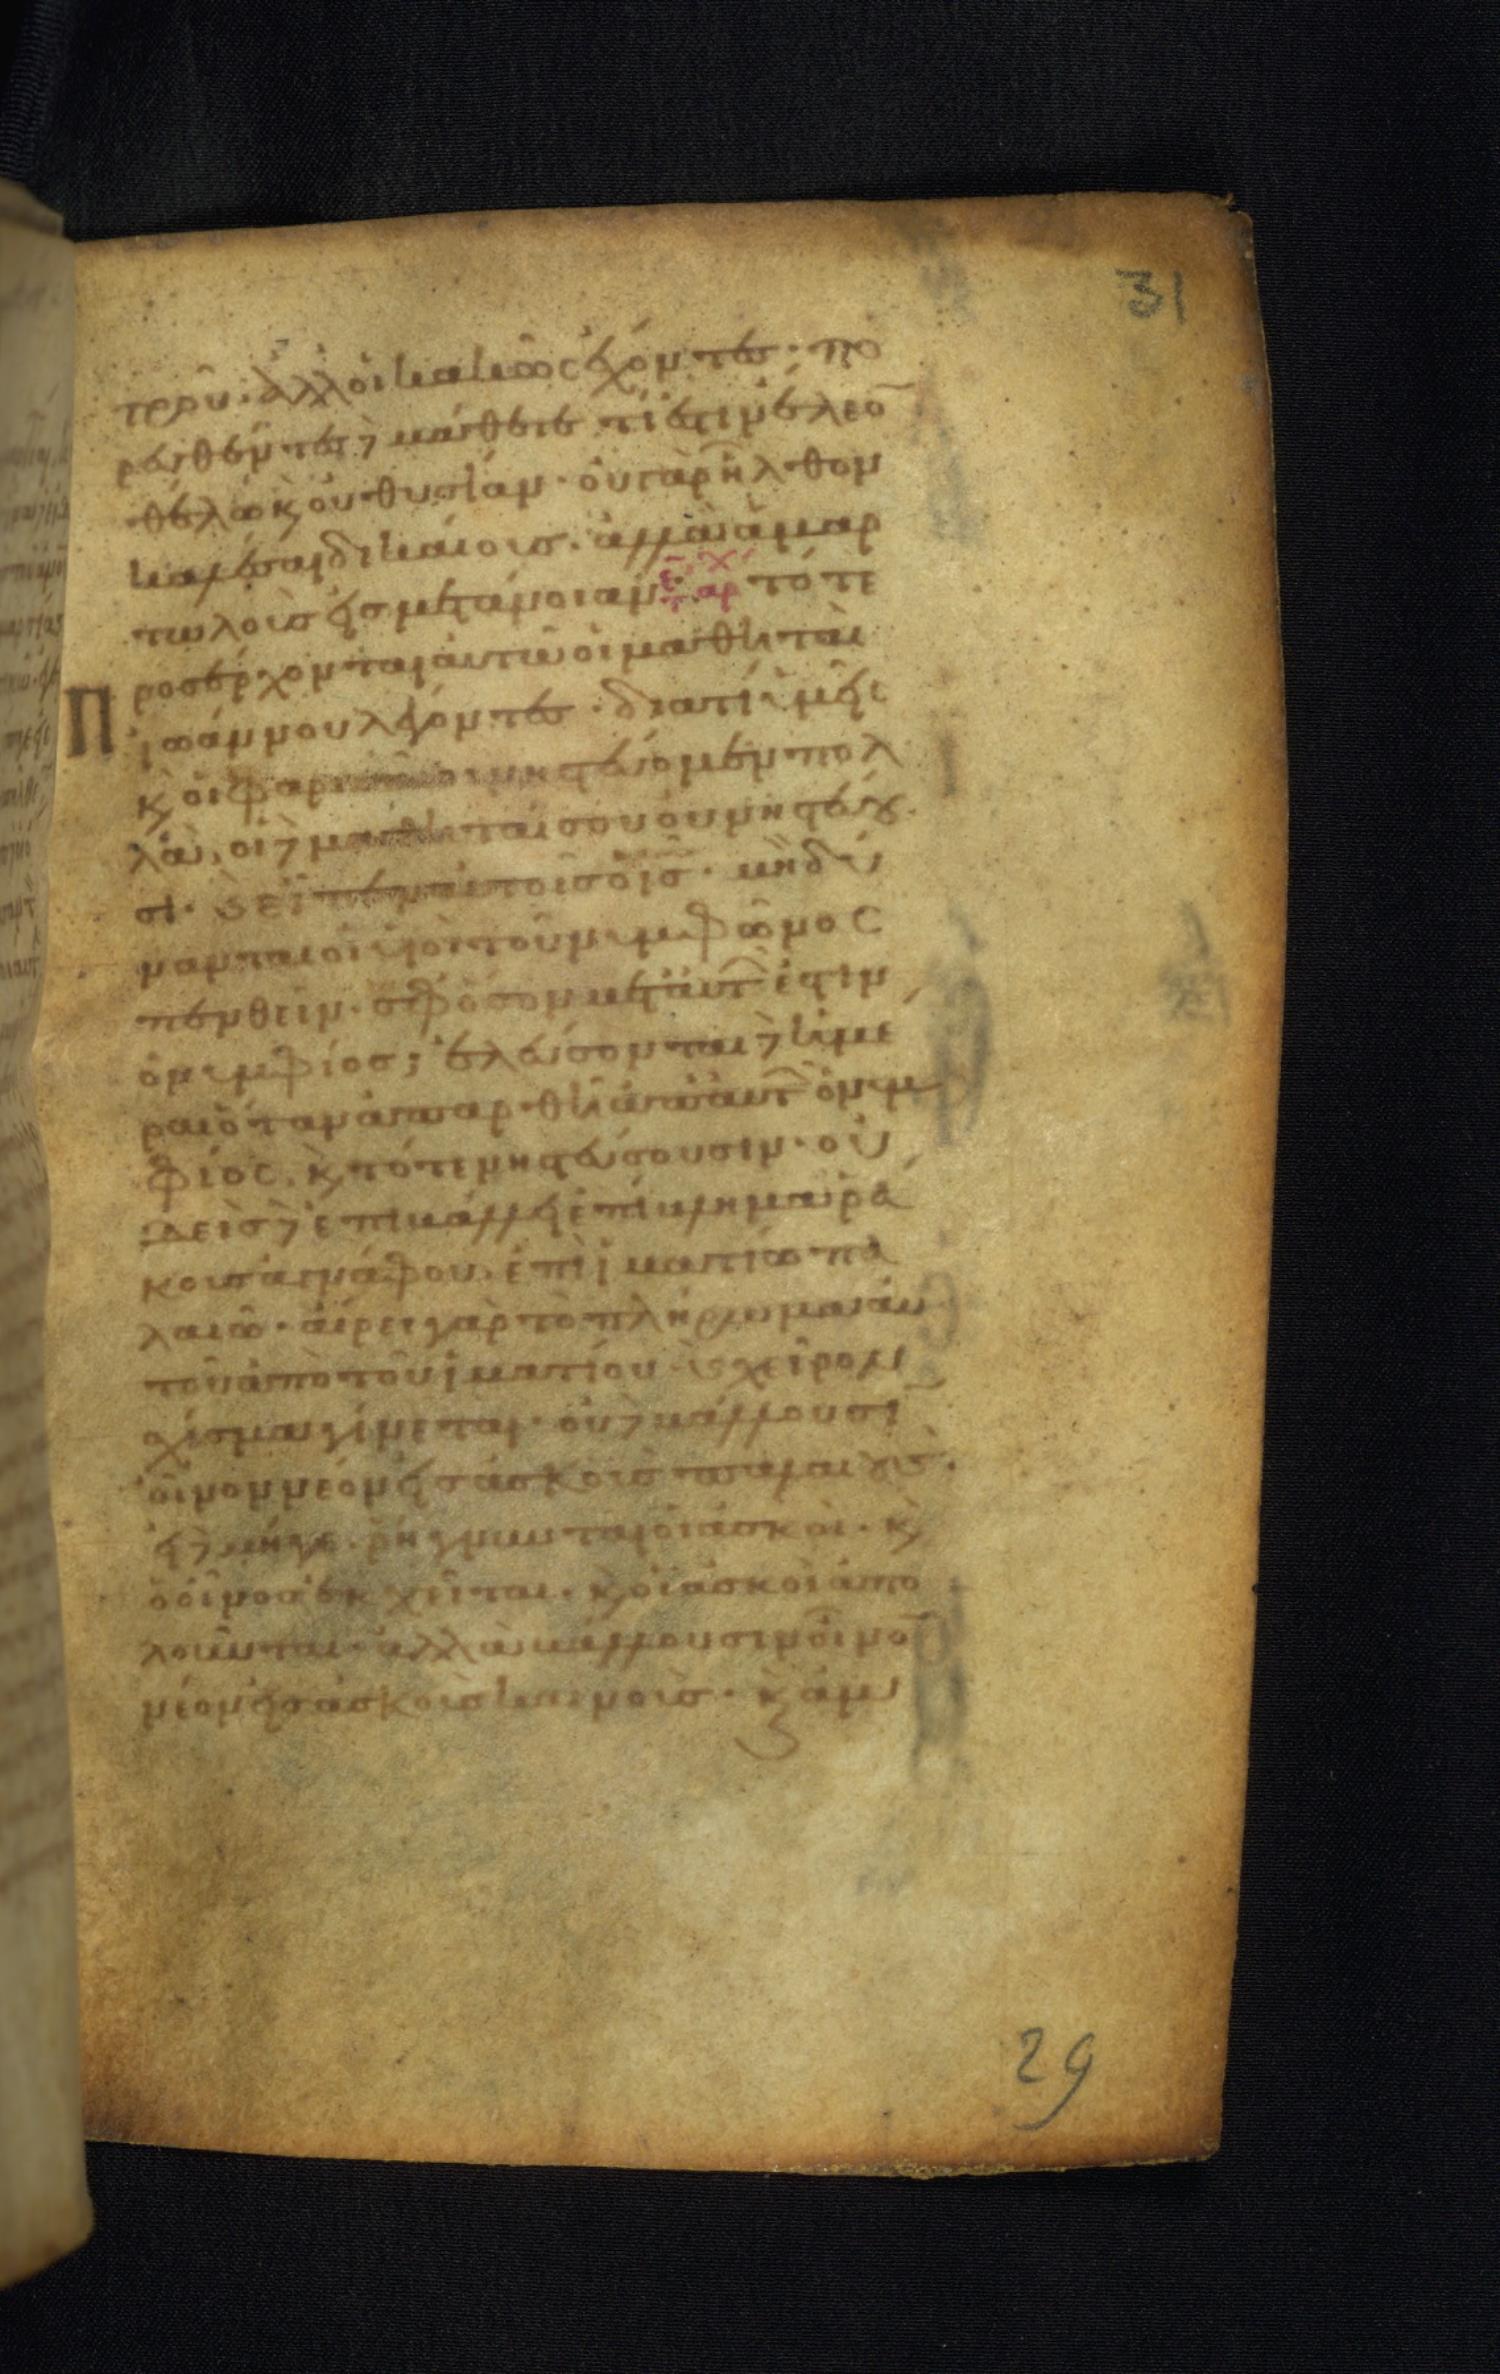 31
τρου· ἀλλοι κακῶς ἔχοντες· πο
ρευθέντες δὲ μάθετε τί ἐστιν ἔλεον
θέλω κ οὐ θυσίαν· οὐ γὰρ ἦλθον
καλέσαι δικαίους· ἀλλὰ ἁμαρ
τωλοὺς εἰς μετάνοιαν τότε
Π
ροσέρχονται αὐτῶ οἱ μαθηταὶ
ἰωάννου λέγοντες· διατί ἡμεῖς
κ οἱ φαρισαῖοι νηστεύομεν πολ
λά· οἱ δὲ μαθηταί σου οὐ νηστεύου
σι· εἶπεν αὐτοῖς ὁ ις· μὴ δύ
νανται οἱ υἱοὶ τοῦ νυμφῶνος
πενθεῖν· ἐφ ὅσον μετ αὐτ ἐστιν
ὁ νυμφίος; ἐλεύσονται δὲ ἡμέ
ραι ὅταν ἀπαρθῆ ἀπ αὐτ ὁ νυμ
φίος· κ τότε νηστεύσουσιν· οὐ
δεὶς δὲ ἐπιβάλλει ἐπίβλημα ῥά
κους ἀγνάφου ἐπὶ ἱματίω πα
λαιῶ· αἴρει γὰρ τὸ πλήρωμα αὐ
τοῦ ἀπὸ τοῦ ἱματίου κ χεῖρον
σχίσμα γίνεται· οὐδὲ βάλλουσιν
οἶνον νέον εἰς ἀσκοὺς παλαιούς·
εἰ δὲ μήγε· ῥήγνυνται οἱ ἀσκοί· κ
ὁ οἶνος ἐκχεῖται· κ οἱ ἀσκοὶ ἀπο
λοῦνται· ἀλλὰ βάλλουσιν οἶνον
νέον εἰς ἀσκοὺς καινούς· κ ἀμ
29